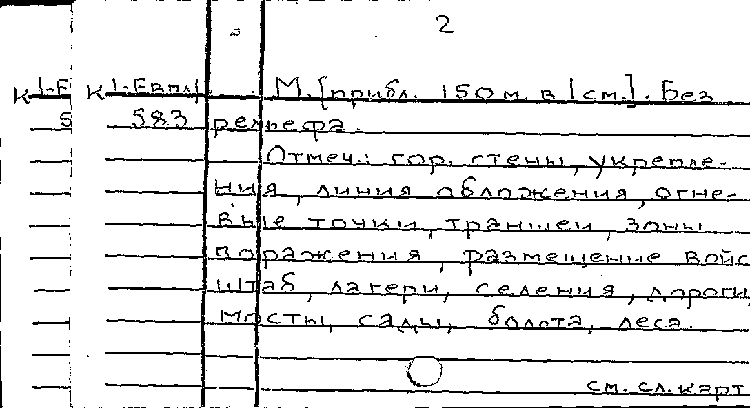 2
К 1-Евпл
М. [прибл. 150 м. в 1 см.]. Без
583 рельефа.
Отмеч.: гор. стены, укрепле-
ния, линия обложения, огне-
вые точки, траншеи, зоны
поражения, размещение войс
штаб, лагери, селения, дороги,
мосты, сады, болота, леса.
см. сл. карт